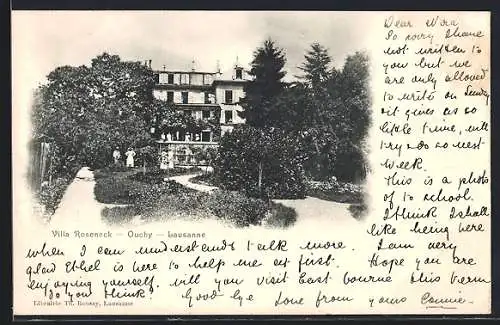 Dear Dora
So sorry I have
not written to
you but we
are only allowed
to write on Sunday
it gives us so
little time, will
try & do so next
week.
This is a photo
of to school.
I think I shall
like being here
Villa Roseneck — Ouchy — Lausanne
when I can understand & talk more. I am very
glad Ethel is here to help me at first. Hope you are
enjoying yourself. will you visit East bourne this term
do you think? Good bye Love from yours Connie.
Librairie Th. Roussy, Lausanne